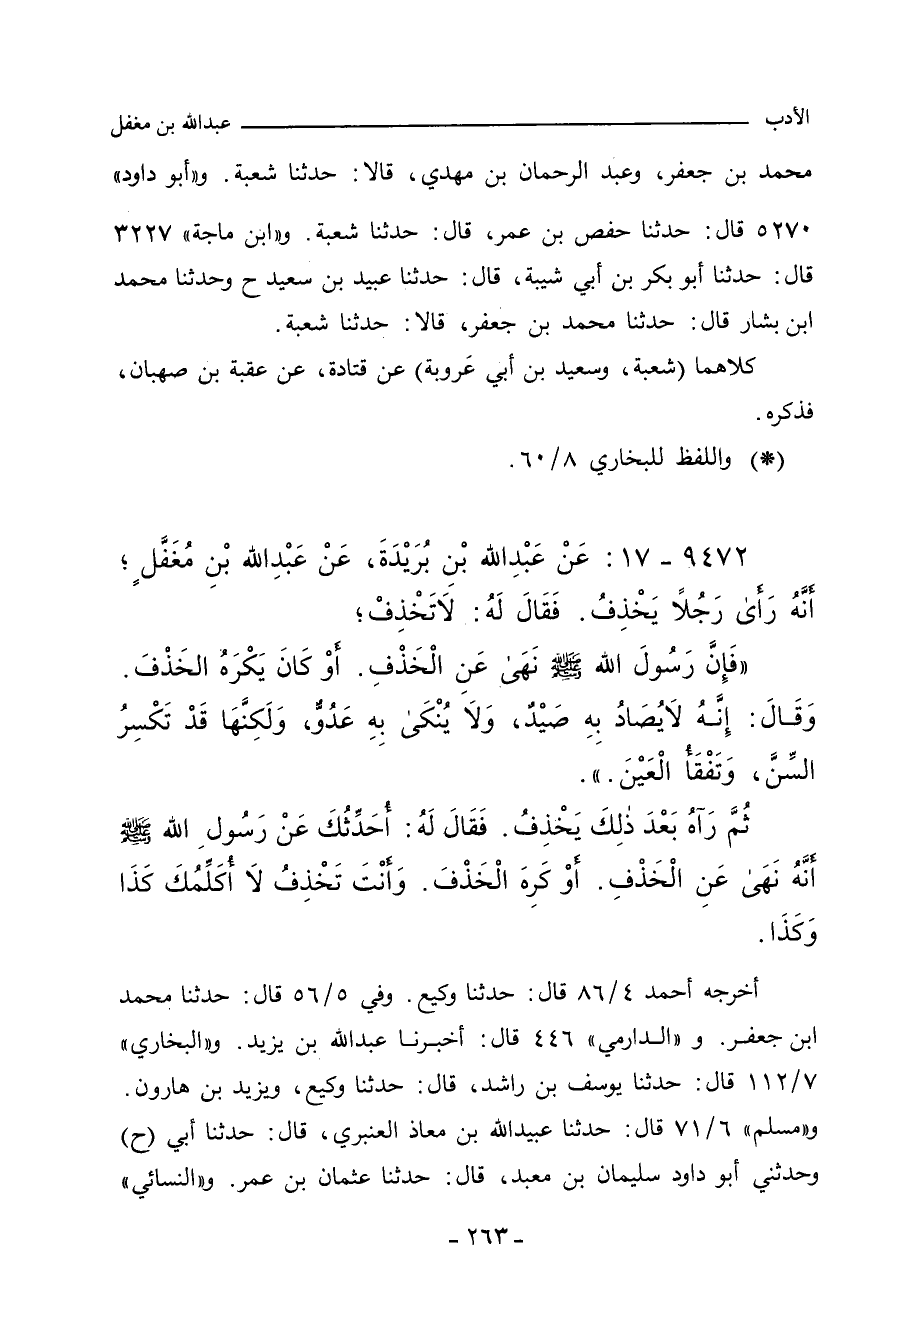 الأدب ـــــــــــــ عبدالله بن مغفل
محمد بن جعفر، وعبد الرحمان بن مهدي، قالا: حدثنا شعبة. و«أبو داود»
٥٢٧٠ قال: حدثنا حفص بن عمر، قال: حدثنا شعبة. و«ابن ماجة» ٣٢٢٧
قال: حدثنا أبو بكر بن أبي شيبة، قال: حدثنا عبيد بن سعيد ح وحدثنا محمد
ابن بشار قال: حدثنا محمد بن جعفر، قالا: حدثنا شعبة.
كلاهما (شعبة، وسعيد بن أبي عَروبة) عن قتادة، عن عقبة بن صهبان،
فذكره.
(*) واللفظ للبخاري ٦٠/٨.
٩٤٧٢ - ١٧: عَنْ عَبْدِاللهِ بْنِ بُرَيْدَةَ، عَنْ عَبْدِاللهِ بْنِ مُغَفَّلٍ؛
أَنَّهُ رَأَىٰ رَجُلًا يَخْذِفُ. فَقَالَ لَهُ: لَاتَخْذِفْ؛
«فَإِنَّ رَسُولَ اللهِ ﷺ نَهَىٰ عَنِ الْخَذْفِ. أَوْ كَانَ يَكْرَهُ الخَذْفَ.
وَقَالَ: إِنَّهُ لَايُصَادُ بِهِ صَيْدٌ، وَلَا يُنْكَىٰ بِهِ عَدُوٌّ، وَلَكِنَّهَا قَدْ تَكْسِرُ
السِّنَّ، وَتَفْقَأُ الْعَيْنَ.».
ثُمَّ رَآهُ بَعْدَ ذٰلِكَ يَخْذِفُ. فَقَالَ لَهُ: أُحَدِّثُكَ عَنْ رَسُولِ اللهِ ﷺ
أَنَّهُ نَهَىٰ عَنِ الْخَذْفِ. أَوْ كَرِهَ الْخَذْفَ. وَأَنْتَ تَخْذِفُ لَا أُكَلِّمُكَ كَذَا
وَكَذَا.
أخرجه أحمد ٨٦/٤ قال: حدثنا وكيع. وفي ٥٦/٥ قال: حدثنا محمد
ابن جعفر. و «الدارمي» ٤٤٦ قال: أخبرنا عبدالله بن يزيد. و«البخاري»
١١٢/٧ قال: حدثنا يوسف بن راشد، قال: حدثنا وكيع، ويزيد بن هارون.
و«مسلم» ٧١/٦ قال: حدثنا عبيدالله بن معاذ العنبري، قال: حدثنا أبي (ح)
وحدثني أبو داود سليمان بن معبد، قال: حدثنا عثمان بن عمر. و«النسائي»
- ٢٦٣ -